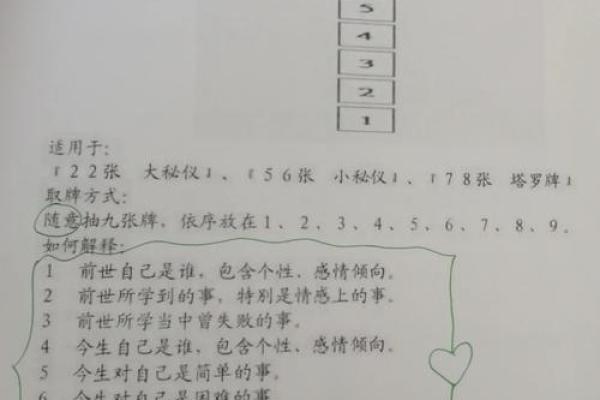 5
4
3
2
1
适用于:
『22张 大秘仪』、『56张 小秘仪』、『78张 塔罗牌』
取牌方式:
随意抽九张牌，依序放在1、2、3、4、5、6、7、8、9。
如何解释:
1 前世自己是谁，包含个性、感情倾向。
2 前世所学到的事，特别是情感上的事。
3 前世所学当中曾失败的事。
4 今生自己是谁、包含个性、感情倾向。
5 今生对自己是简单的事。
6 今生对自己是困难的事